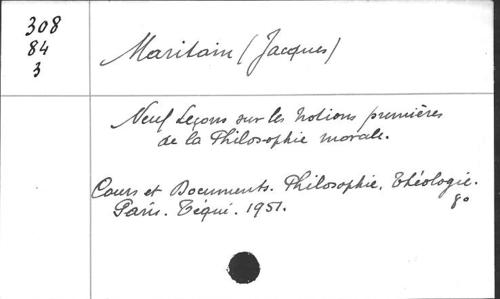 308
84
3
Maritain (Jacques)
Neuf Leçons sur les Notions premières
de la Philosophie morale.
Cours et Documents. Philosophie. Théologie.
Paris. Téqui. 1951. 8º